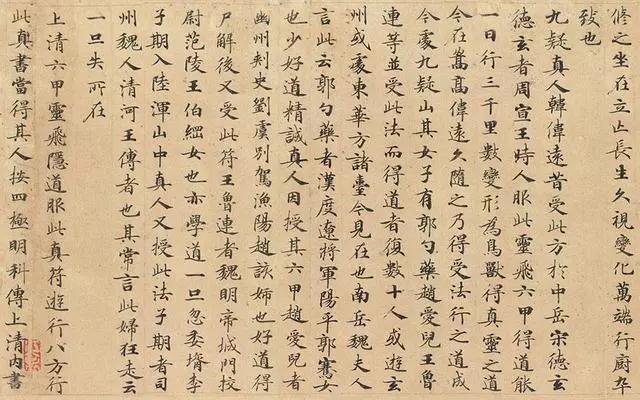 修之坐在立亡長生久視變化萬端行廚卒
致也
九疑真人韓偉遠昔受此方於中岳宋德玄
德玄者周宣王時人服此靈飛六甲得道能
一日行三千里數變形為鳥獸得真靈之道
今在嵩高偉遠久隨之乃得受法行之道成
今處九疑山其女子有郭勺藥趙愛兒王魯
連等並受此法而得道者復數十人或遊玄
州或處東華方諸臺今見在也南岳魏夫人
言此云郭勺藥者漢度遼將軍陽平郭騫女
也少好道精誠真人因授其六甲趙愛兒者
幽州刺史劉虞別駕漁陽趙該婦也好道得
尸解後又受此符王魯連者魏明帝城門校
尉范陵王伯綱女也亦學道一旦忽委壻李
子期入陸渾山中真人又授此法子期者司
州魏人清河王傳者也其常言此婦狂走云
一旦失所在
上清六甲靈飛隱道服此真符遊行八方行
此真書當得其人按四極明科傳上清內書